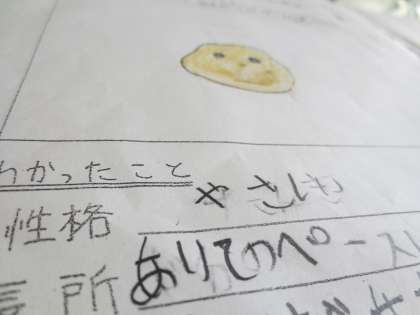 わかったこと
性格 やさしい
長所 あいてのペース